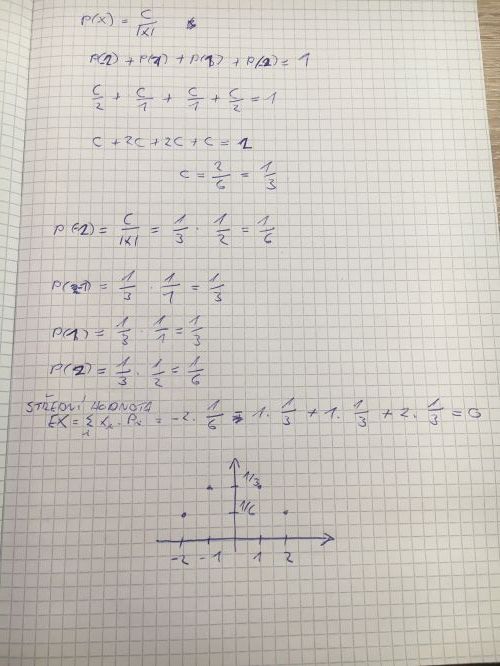 p(x) = c/|x|
p(-2) + p(-1) + p(1) + p(2) = 1
c/2 + c/1 + c/1 + c/2 = 1
c + 2c + 2c + c = 2
c = 2/6 = 1/3
p(-2) = c/|x| = 1/3 · 1/2 = 1/6
p(-1) = 1/3 · 1/1 = 1/3
p(1) = 1/3 · 1/1 = 1/3
p(2) = 1/3 · 1/2 = 1/6
STŘEDNÍ HODNOTA
EX = Σ x · p = -2 · 1/6 - 1 · 1/3 + 1 · 1/3 + 2 · 1/3 = 0
1/3
1/6
-2 -1 1 2